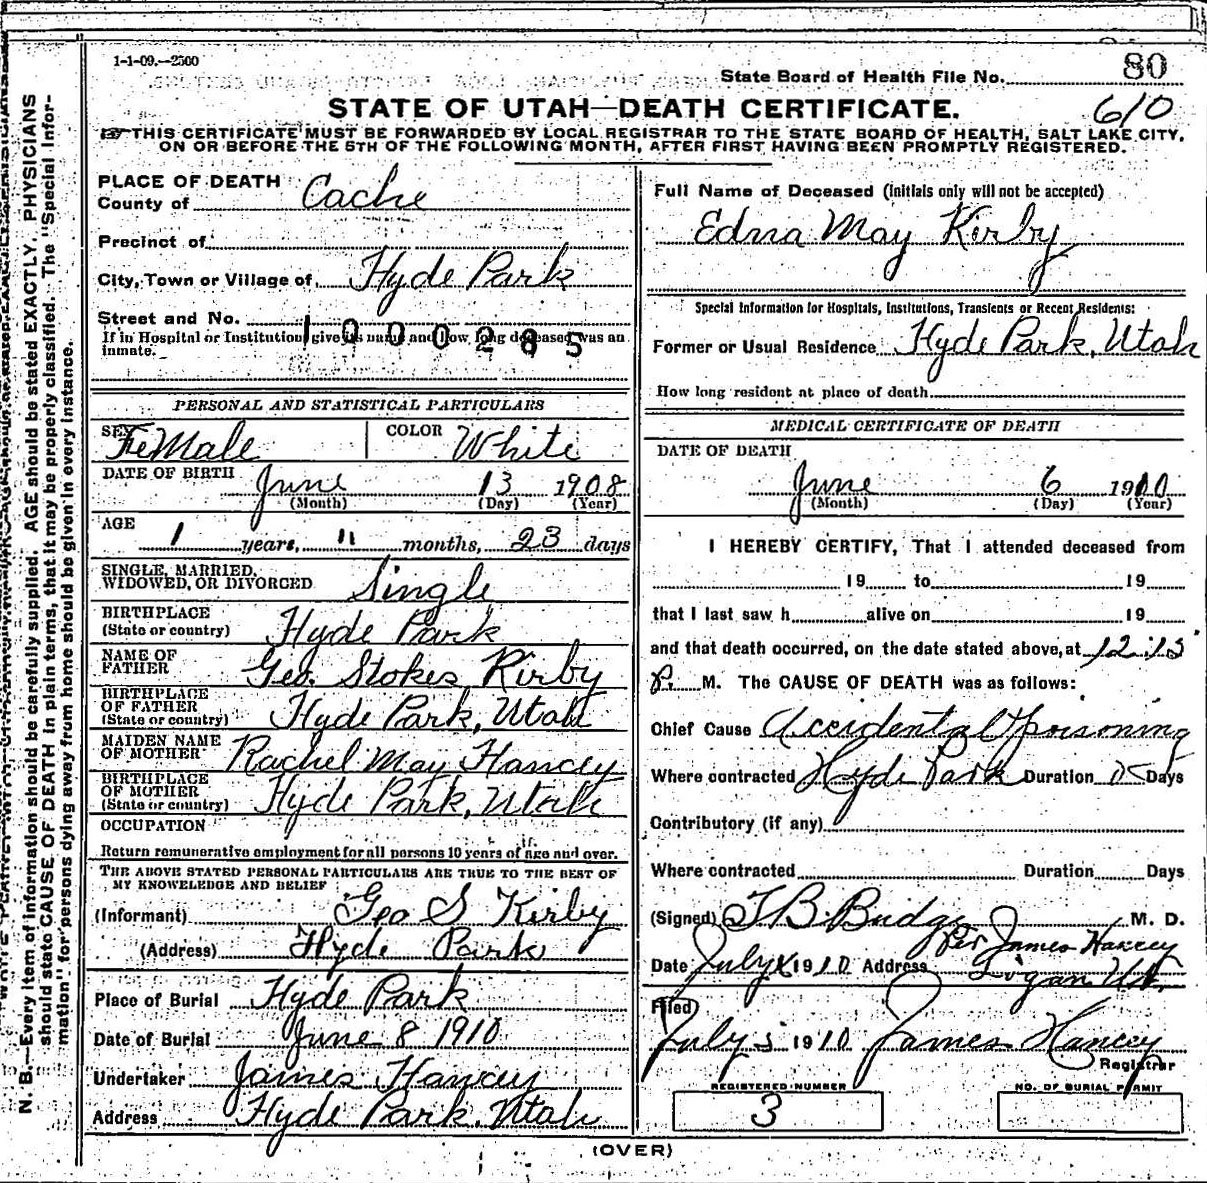 1-1-09.—2500
State Board of Health File No. 80
610
STATE OF UTAH—DEATH CERTIFICATE.
THIS CERTIFICATE MUST BE FORWARDED BY LOCAL REGISTRAR TO THE STATE BOARD OF HEALTH, SALT LAKE CITY,
ON OR BEFORE THE 5TH OF THE FOLLOWING MONTH, AFTER FIRST HAVING BEEN PROMPTLY REGISTERED.
N. B.—Every item of information should be carefully supplied. AGE should be stated EXACTLY. PHYSICIANS
should state CAUSE OF DEATH in plain terms, that it may be properly classified. The "Special Infor-
mation" for persons dying away from home should be given in every instance.
PLACE OF DEATH
County of Cache
Precinct of
City, Town or Village of Hyde Park
Street and No.
1000285
If in Hospital or Institution give its name and how long deceased was an
inmate.
PERSONAL AND STATISTICAL PARTICULARS
SEX FeMale COLOR White
DATE OF BIRTH June 13 1908
(Month) (Day) (Year)
AGE
1 years, 11 months, 23 days
SINGLE, MARRIED,
WIDOWED, OR DIVORCED Single
BIRTHPLACE
(State or country) Hyde Park
NAME OF
FATHER Geo. Stokes Kirby
BIRTHPLACE
OF FATHER
(State or country) Hyde Park, Utah
MAIDEN NAME
OF MOTHER Rachel May Hancey
BIRTHPLACE
OF MOTHER
(State or country) Hyde Park, Utah
OCCUPATION
Return remunerative employment for all persons 10 years of age and over.
THE ABOVE STATED PERSONAL PARTICULARS ARE TRUE TO THE BEST OF
MY KNOWLEDGE AND BELIEF
(Informant) Geo S Kirby
(Address) Hyde Park
Place of Burial Hyde Park
Date of Burial June 8 1910
Undertaker James Hancey
Address Hyde Park, Utah
Full Name of Deceased (initials only will not be accepted)
Edna May Kirby
Special Information for Hospitals, Institutions, Transients or Recent Residents:
Former or Usual Residence Hyde Park, Utah
How long resident at place of death
MEDICAL CERTIFICATE OF DEATH
DATE OF DEATH
June 6 1910
(Month) (Day) (Year)
I HEREBY CERTIFY, That I attended deceased from
19 to 19
that I last saw h alive on 19
and that death occurred, on the date stated above, at 12:15
P. M. The CAUSE OF DEATH was as follows:
Chief Cause Accidental poisoning
Where contracted Hyde Park Duration Days
Contributory (if any)
Where contracted Duration Days
(Signed) T B Budge M. D.
Per James Hancey
Date July 1910 Address Logan Ut.
Filed)
July 5 1910 James Hancey
Registrar
REGISTERED NUMBER
3
NO. OF BURIAL PERMIT
(OVER)